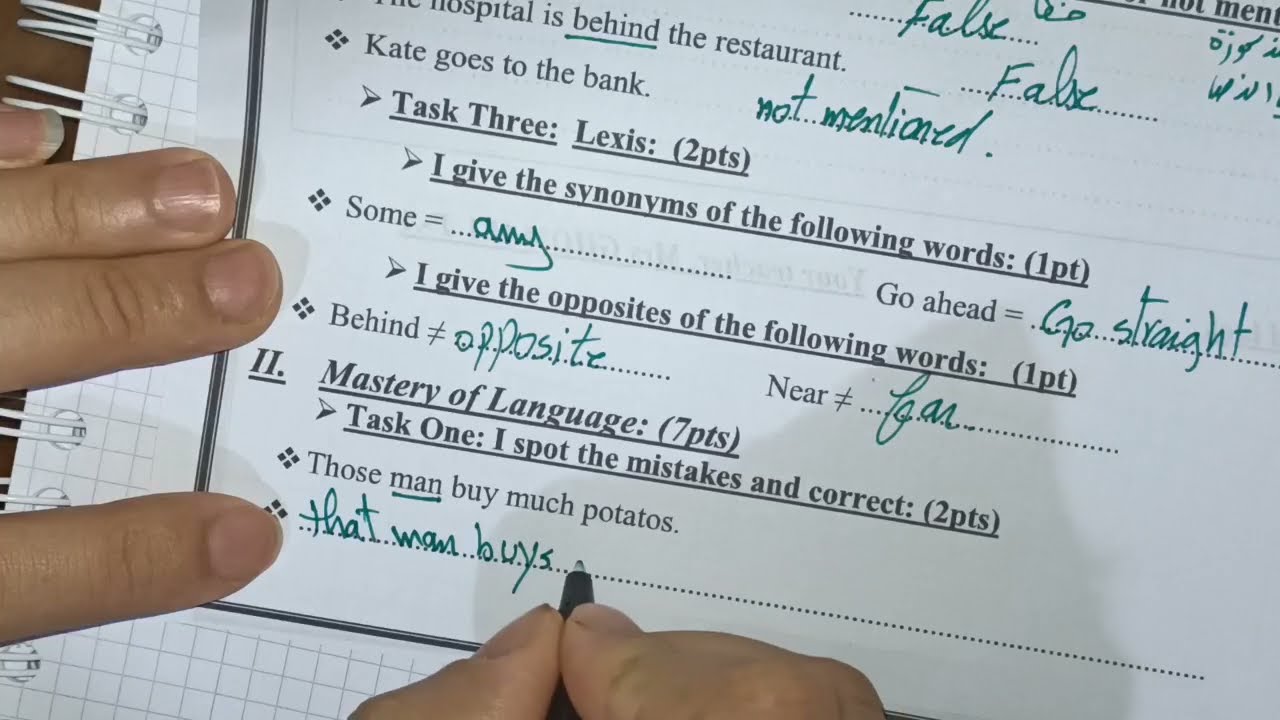 hospital is behind the restaurant. False
not ment
Kate goes to the bank. False
not mentioned.
➢ Task Three: Lexis: (2pts)
➢ I give the synonyms of the following words: (1pt)
❖ Some = ...any... Go ahead = .Go straight
➢ I give the opposites of the following words: (1pt)
❖ Behind ≠ opposite Near ≠ ...far
II. Mastery of Language: (7pts)
➢ Task One: I spot the mistakes and correct: (2pts)
❖ Those man buy much potatos.
❖ that man buys